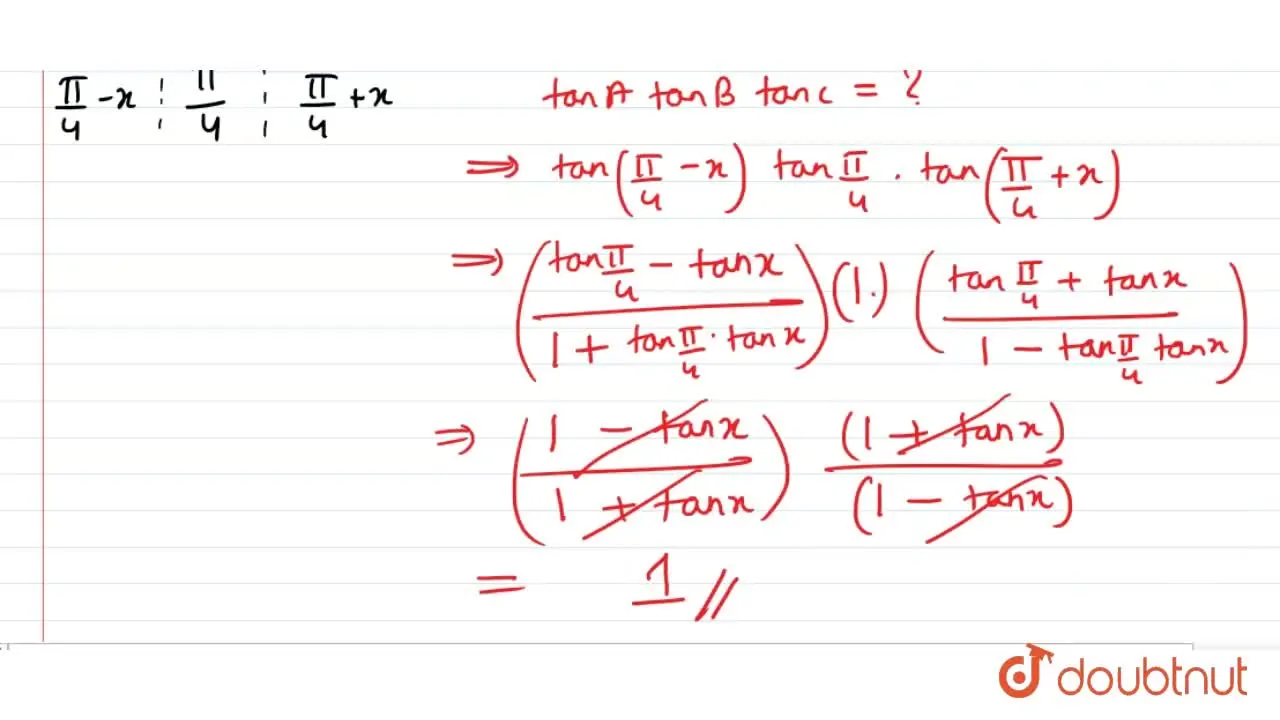 π/4 - x ¦ π/4 ¦ π/4 + x
tan A tan B tan C = ?
⇒ tan(π/4 - x) tan π/4 · tan(π/4 + x)
⇒ ((tan π/4 - tan x)/(1 + tan π/4 · tan x)) (1·) ((tan π/4 + tan x)/(1 - tan π/4 tan x))
⇒ ((1 - tan x)/(1 + tan x)) (1 + tan x)/(1 - tan x)
= 1 //
doubtnut